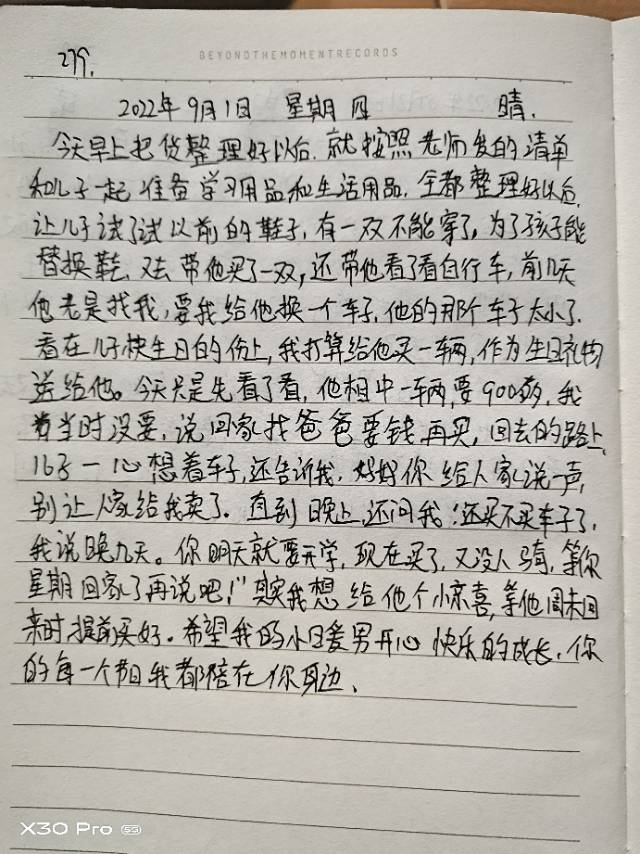 BEYONDTHEMOMENTRECORDS
279.
2022年9月1日 星期四 晴.
今天早上把货整理好以后.就按照老师发的清单
和儿子一起准备学习用品和生活用品.全都整理好以后.
让儿子试了试以前的鞋子,有一双不能穿了,为了孩子能
替换鞋.又去带他买了一双,还带他看了看自行车,前几天
他老是找我,要我给他换一个车子,他的那个车子太小了.
看在儿子快生日的份上,我打算给他买一辆,作为生日礼物
送给他。今天只是先看了看,他相中一辆,要900多,我
当时没要,说回家找爸爸要钱再买,回去的路上,
儿子一心想着车子,还告诉我.好好你给人家说一声,
别让人家给我卖了.直到晚上,还问我!还买不买车子了,
我说晚几天。你明天就要开学,现在买了,又没人骑,等你
星期回家了再说吧!"其实我想给他个小惊喜,等他周末回
来时提前买好.希望我的小日爱男开心快乐的成长.你
的每一个节日我都陪在你身边.
X30 Pro 5G